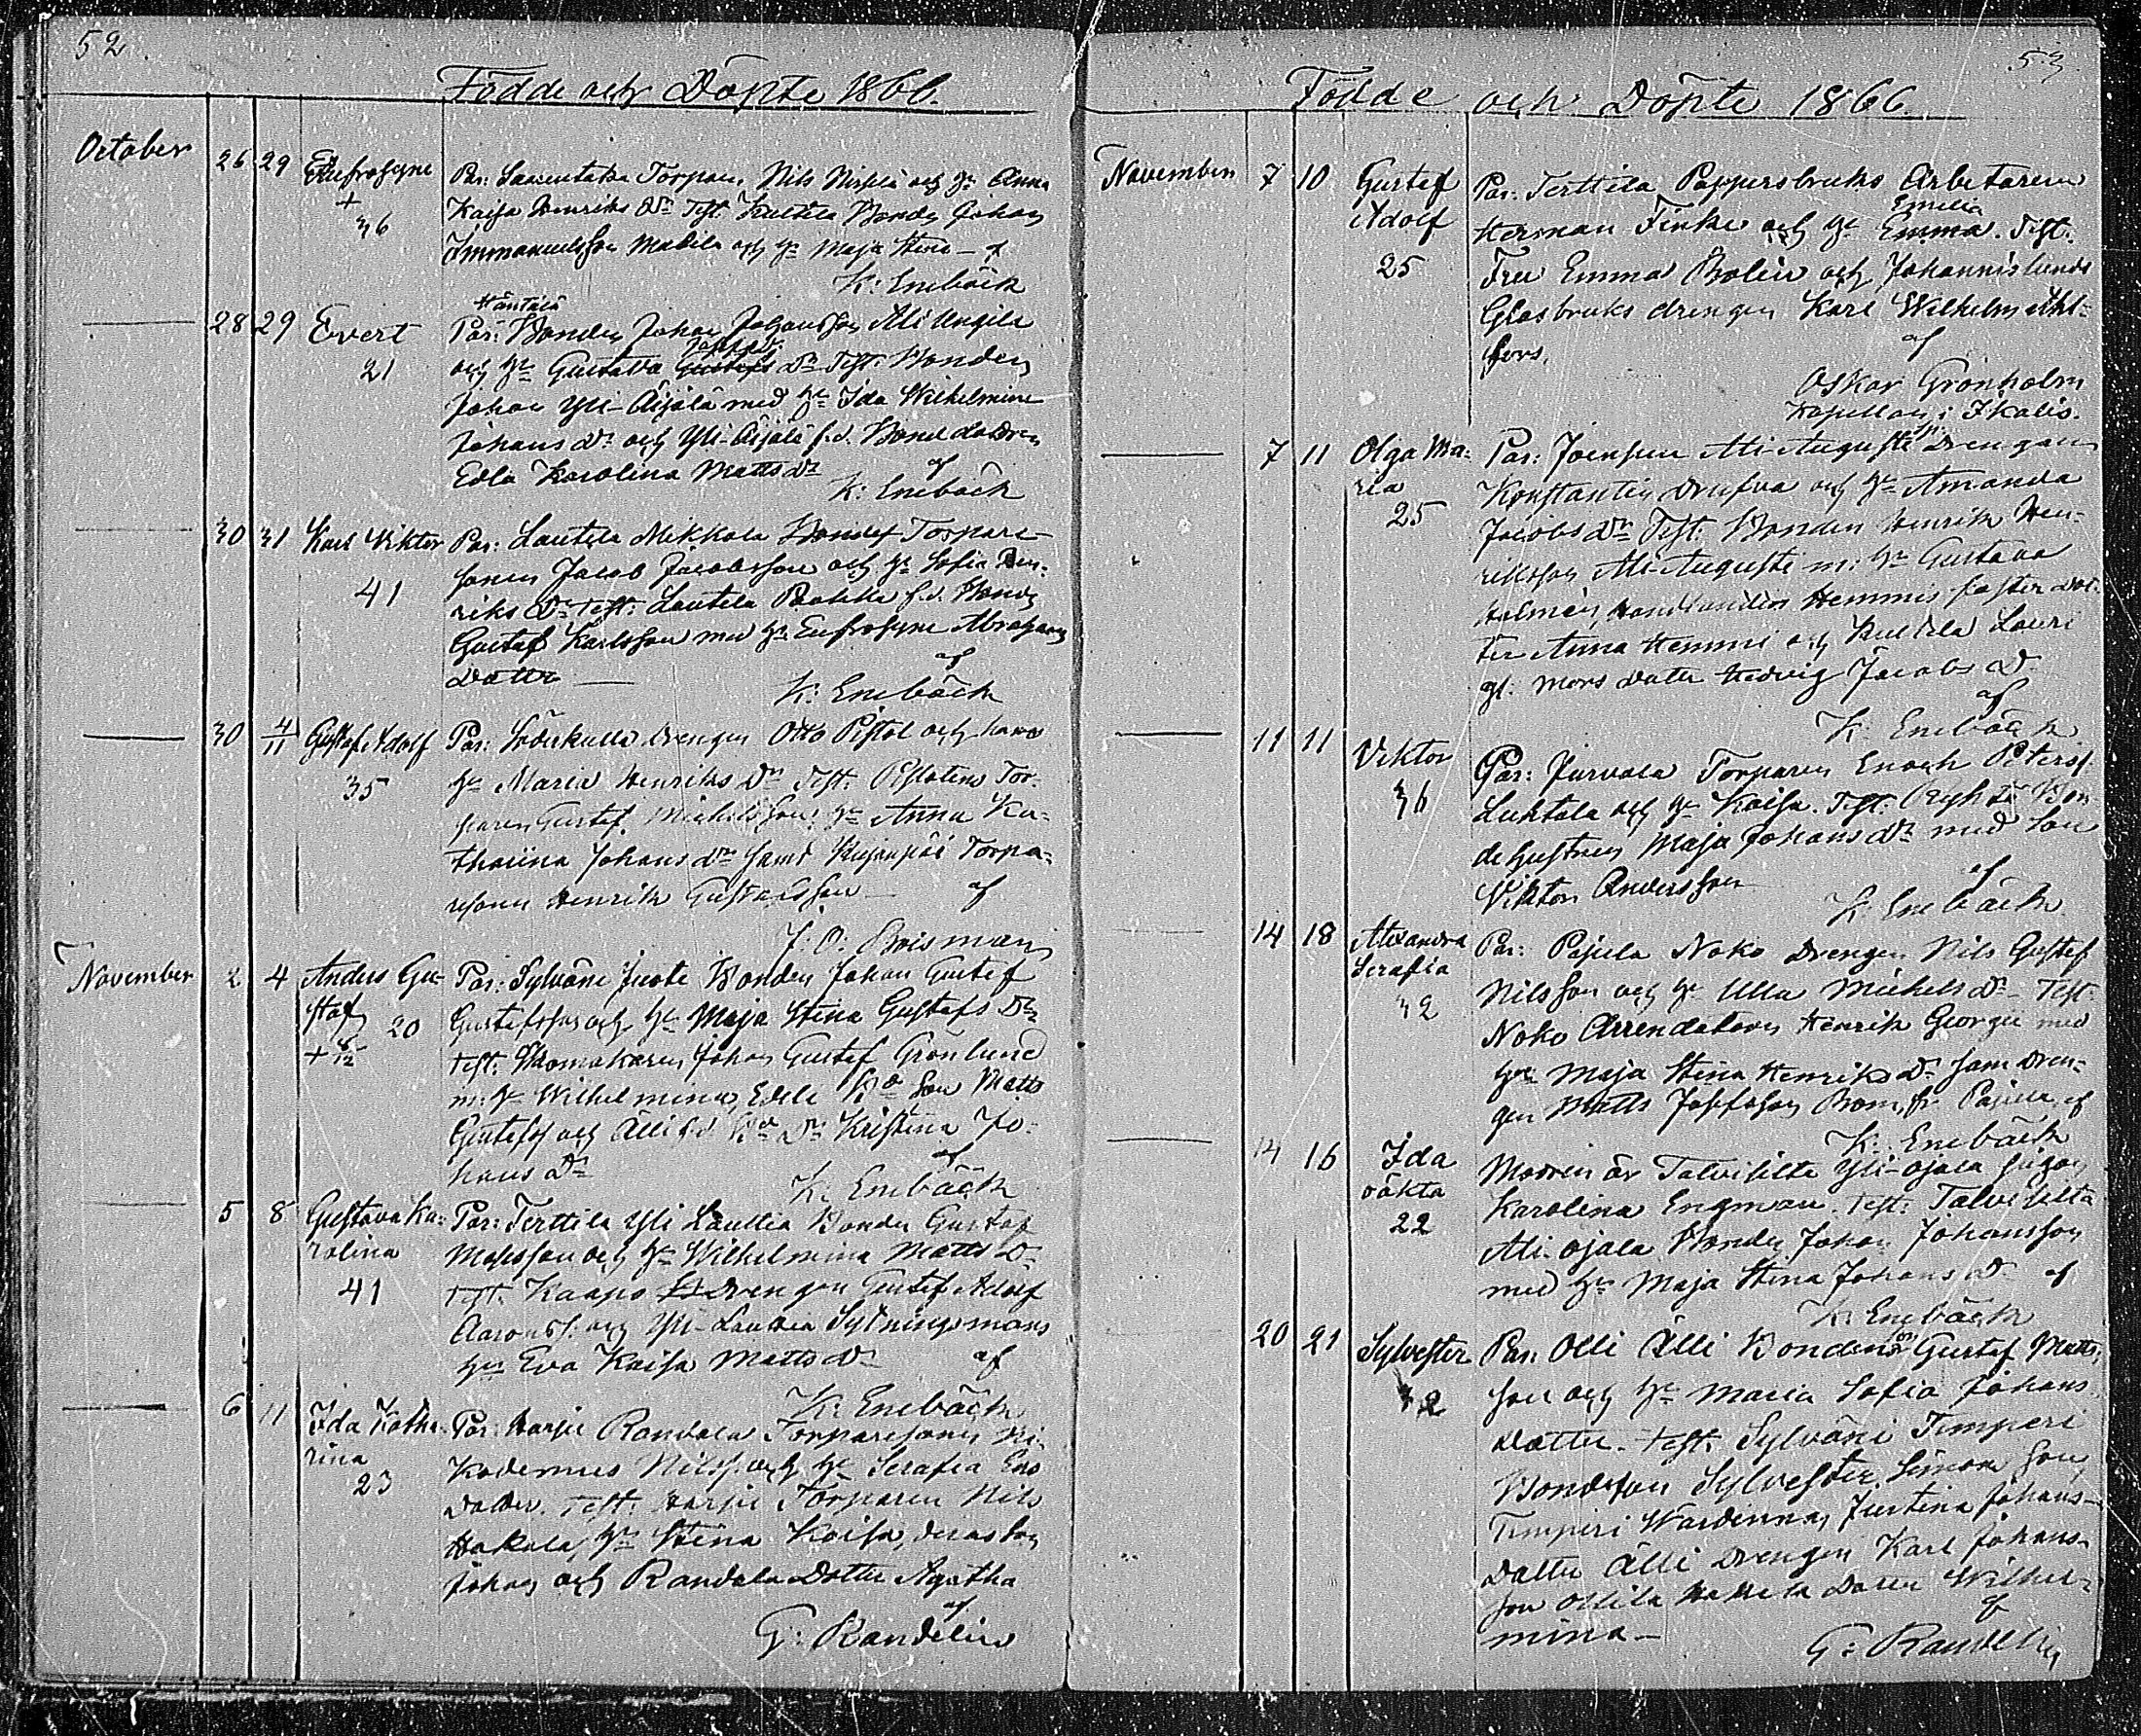 52.
Födde och Döpte 1866.
October 26 29 Eufrosyne Par: Torparen Nils och h: Anna
+ Kaisa Henriks Dr Test: Bonden Johan
36 Immanuelsson Mattila och hu Maja Stina – af
K: Enebäck
Häntälä
28 29 Evert Par: Bonden Johan Johansson Ali Ungila
Josefs
21 och hu Gustava Gustafs Dr Test: Bonden
Johan Yli-Äijälä med hu Ida Wilhelmina
Johans Dr och Yli-Äijälä f.d. Bonde dottren
Edla Karolina Matts Dr af
K: Enebäck
30 31 Karl Viktor Par: Lautela Mikkola Bondes Torpare-
sonen Jacob Jacobsson och hu Sofia Hen-
41 riks Dr Test: Lautela Paakka f.d. Bonden
Gustaf Karlsson med hu Eufrosyne Abrahams
Dotter — af
K: Enebäck
30 4/11 Gustaf Adolf Par: Drengen Otto Pistol och hans
35 hu Maria Henriks Dr Test: Tor-
paren Gustaf Michelsson, hu Anna Ka-
tharina Johans Dr samt Torpa-
resonen Henrik Gustafsson — af
J: O: Roisman
November 2 4 Anders Gu- Par: Sylväne Juote Bonden Johan Gustaf
staf 20 Gustafsson och hu Maja Stina Gustafs Dr
+ 8/12 Test: Skomakaren Johan Gustaf Grönlund
m: hu Wilhelmina, Son Matts
Gustafss och Älli f.d. Kristina Jo-
hans Dr af
K: Enebäck
5 8 Gustava Ka- Par: Terttila Yli Laullia Bonden Gustaf
rolina och hu Wilhelmina Matts Dr
41 Test: Kaapo Drengen Gustaf Adolf
Aaronss: och Yli-Laullia Sytningsmans
hu Eva Kaisa Matts Dr af
K: Enebäck
6 11 Ida Katha- Par: Harju Randala Torparesonen Ni-
rina kodemus Nilss: och hu Serafia
23 Dotter. Test: Harju Torparen Nils
Hakala, hu Stina Kaisa, deras son
Johan och Randala Dotter Agatha
af
G: Randelin
53.
Födde och Döpte 1866.
November 7 10 Gustaf Par: Terttila Pappersbruks Arbetaren
Emelia
Adolf Herman Finke och hu Emma. Test:
25 Fru Emma Bolin och Johannislunds
Glasbruks drengen Karl Wilhelm Ahl-
fors, af
Oskar Grönholm
Kapellan i Ikalis.
7 11 Olga Ma- Par: Joensuu Ali-Auguste Drengen
ria Konstantin och hu Amanda
25 Jacobs Dr Test: Bonden Henrik Hen-
riksson Ali-Auguste m: hu Gustava
Helmén, Handlanden Hemmis foster dot-
ter Anna Hemmi och Lauri
gl: mors dotter Hedvig Jacobs Dr
af
K: Enebäck
11 11 Viktor Par: Jurvala Torparen Enoch Peterss
36 Luhtala och hu Kaisa. Test: Bon-
dehustrun Maja Johans Dr med son
Viktor Andersson af
K: Enebäck
14 18 Alexandra Par: Pajula Noko Drengen Nils Gustaf
Serafia Nilsson och hu Ulla Michels Dr – Test:
32 Noko Arrendatorn Henrik Georgii med
hu Maja Stina Henriks Dr samt Dren-
gen Matts Josefsson fr. Pajula, af
K: Enebäck
14 16 Ida Modren är Talvisilta Yli-ojala Pigan
oäkta Karolina Engman. Test: Talvisilta
22 Ali-ojala Bonden Johan Johansson
med hu Maja Stina Johans Dr af
K: Enebäck
20 21 Sylvester Par: Olli Älli Bondens Gustaf Matts-
32 son och hu Maria Sofia Johans
dotter. Test: Sylväni Timperi
Bondeson Sylvester Simonsson,
Timperi Wärdinnan Justina Johans-
dotter Älli Drengen Karl Johans-
son Ollila Dotter Wilhel-
mina – af
G: Randelin